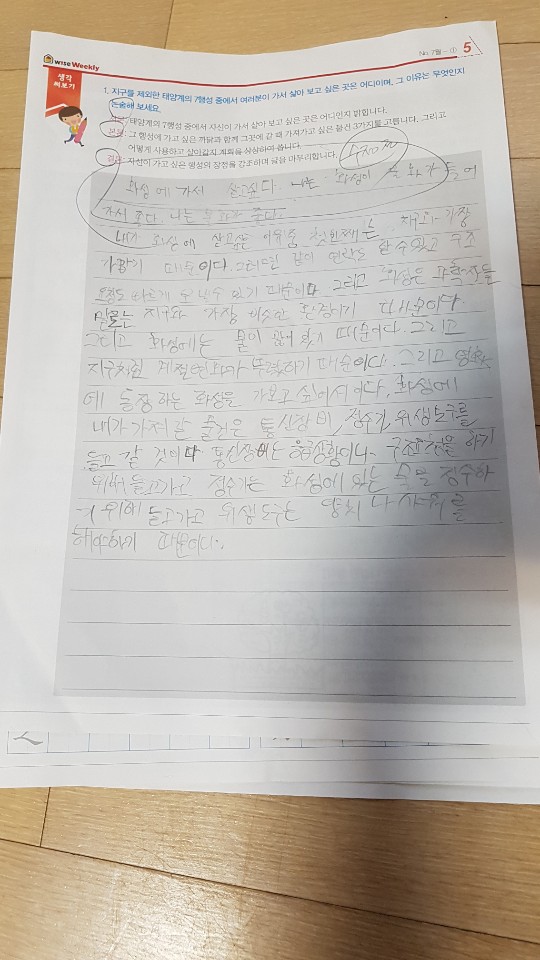 wise Weekly
No. 7월 - ① 5
생각
써보기
1. 지구를 제외한 태양계의 7행성 중에서 여러분이 가서 살아 보고 싶은 곳은 어디이며, 그 이유는 무엇인지
논술해 보세요.
서론: 태양계의 7행성 중에서 자신이 가서 살아 보고 싶은 곳은 어디인지 밝힙니다.
본론: 그 행성에 가고 싶은 까닭과 함께 그곳에 갈 때 가져가고 싶은 물건 3가지를 고릅니다. 그리고
어떻게 사용하고 살아갈지 계획을 상상하여 씁니다.
결론: 자신이 가고 싶은 행성의 장점을 강조하며 글을 마무리합니다.
화성에 가서 살고싶다. 나는 화성이 들어
가서 좋다. 나는 좋다.
내가 화성에 살고싶은 이유중 첫번째는 지구와 가장
가깝기 때문이다. 그러면 같이 연락도 할 수 있고 구조
요청도 빠르게 보낼수 있기 때문이다 그리고 화성은 과학자들
말로는 지구와 가장 비슷한 환경이기 때문이다.
그리고 화성에는 물이 많이 있기 때문이다. 그리고
지구처럼 계절변화가 뚜렷하기 때문이다. 그리고 영화
에 등장하는 화성을 가보고 싶어서이다. 화성에
내가 가져갈 물건은 통신장비, 정수기, 위생도구를
들고 갈 것이다 통신장비는 응급상황이나 구조요청을 하기
위해 들고가고 정수기는 화성에 있는 물을 정수하
기 위해 들고가고 위생도구는 양치나 샤워를
해야하기 때문이다.